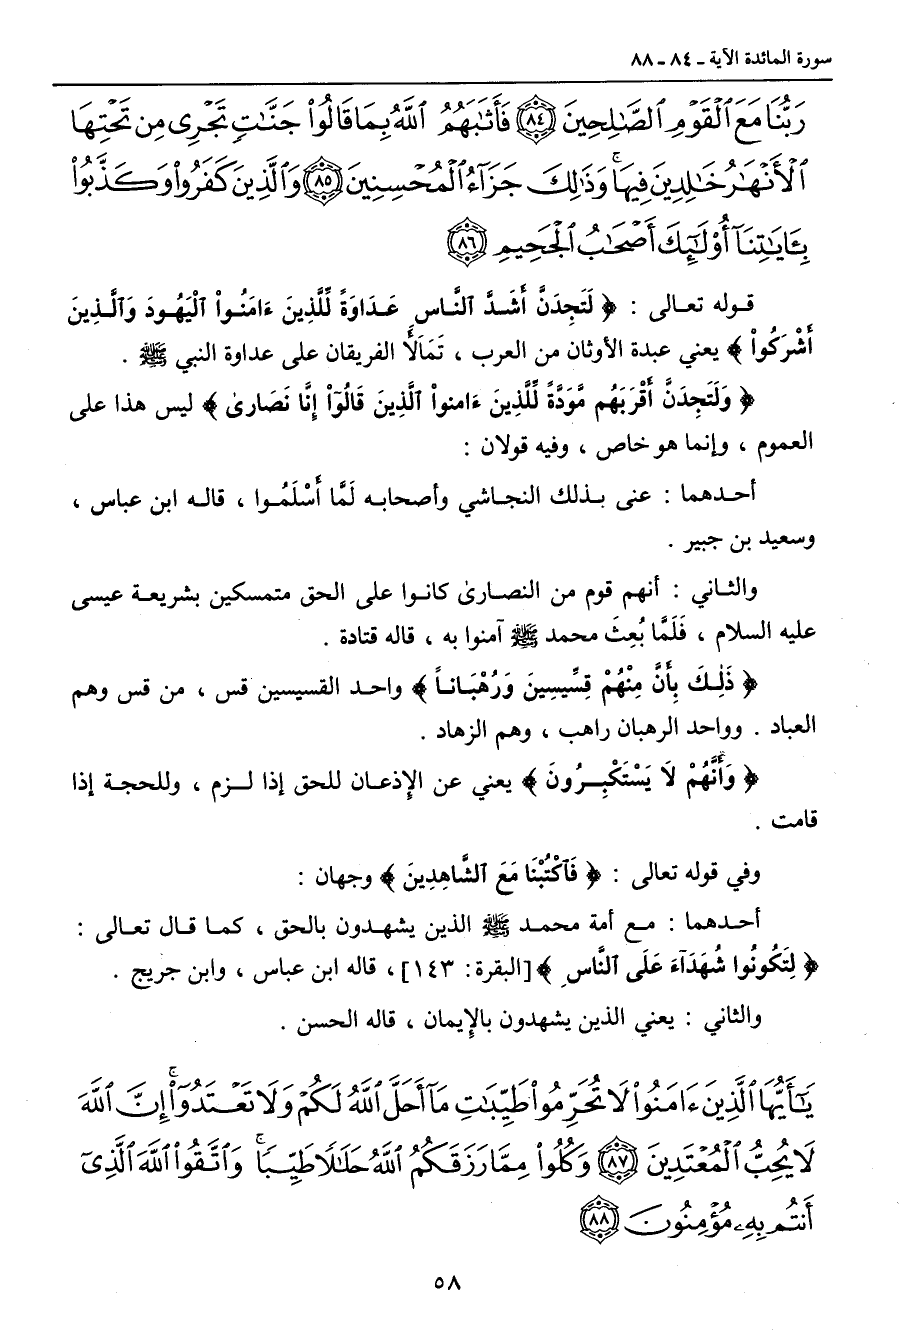 سورة المائدة الآية ـ ٨٤ ـ ٨٨
رَبُّنَا مَعَ ٱلْقَوْمِ ٱلصَّٰلِحِينَ ﴿٨٤﴾ فَأَثَٰبَهُمُ ٱللَّهُ بِمَا قَالُوا۟ جَنَّٰتٍ تَجْرِى مِن تَحْتِهَا
ٱلْأَنْهَٰرُ خَٰلِدِينَ فِيهَا ۚ وَذَٰلِكَ جَزَآءُ ٱلْمُحْسِنِينَ ﴿٨٥﴾ وَٱلَّذِينَ كَفَرُوا۟ وَكَذَّبُوا۟
بِـَٔايَٰتِنَآ أُو۟لَٰٓئِكَ أَصْحَٰبُ ٱلْجَحِيمِ ﴿٨٦﴾
قوله تعالى : ﴿ لَتَجِدَنَّ أَشَدَّ ٱلنَّاسِ عَدَاوَةً لِّلَّذِينَ ءَامَنُواْ ٱلْيَهُودَ وَٱلَّذِينَ
أَشْرَكُواْ ﴾ يعني عبدة الأوثان من العرب ، تَمَالَأَ الفريقان على عداوة النبي ﷺ .
﴿ وَلَتَجِدَنَّ أَقْرَبَهُم مَّوَدَّةً لِّلَّذِينَ ءَامنواْ ٱلَّذِينَ قَالُوٓاْ إِنَّا نَصَارىٰ ﴾ ليس هذا على
العموم ، وإنما هو خاص ، وفيه قولان :
أحدهما : عنى بذلك النجاشي وأصحابه لَمَّا أَسْلَمُوا ، قاله ابن عباس ،
وسعيد بن جبير .
والثاني : أنهم قوم من النصارىٰ كانوا على الحق متمسكين بشريعة عيسى
عليه السلام ، فَلَمَّا بُعِثَ محمد ﷺ آمنوا به ، قاله قتادة .
﴿ ذَٰلِكَ بِأَنَّ مِنْهُمْ قِسِّيسِينَ وَرُهْبَاناً ﴾ واحد القسيسين قس ، من قس وهم
العباد . وواحد الرهبان راهب ، وهم الزهاد .
﴿ وَأَنَّهُمْ لَا يَسْتَكْبِرُونَ ﴾ يعني عن الإذعان للحق إذا لزم ، وللحجة إذا
قامت .
وفي قوله تعالى : ﴿ فَٱكْتُبْنَا مَعَ ٱلشَّاهِدِينَ ﴾ وجهان :
أحدهما : مع أمة محمد ﷺ الذين يشهدون بالحق ، كما قال تعالى :
﴿ لِتَكُونُوا شُهَدَآءَ عَلَى ٱلنَّاسِ ﴾ [البقرة: ١٤٣] ، قاله ابن عباس ، وابن جريج .
والثاني : يعني الذين يشهدون بالإيمان ، قاله الحسن .
يَٰٓأَيُّهَا ٱلَّذِينَ ءَامَنُوا۟ لَا تُحَرِّمُوا۟ طَيِّبَٰتِ مَآ أَحَلَّ ٱللَّهُ لَكُمْ وَلَا تَعْتَدُوٓا۟ ۚ إِنَّ ٱللَّهَ
لَا يُحِبُّ ٱلْمُعْتَدِينَ ﴿٨٧﴾ وَكُلُوا۟ مِمَّا رَزَقَكُمُ ٱللَّهُ حَلَٰلًا طَيِّبًا ۚ وَٱتَّقُوا۟ ٱللَّهَ ٱلَّذِىٓ
أَنتُم بِهِۦ مُؤْمِنُونَ ﴿٨٨﴾
٥٨